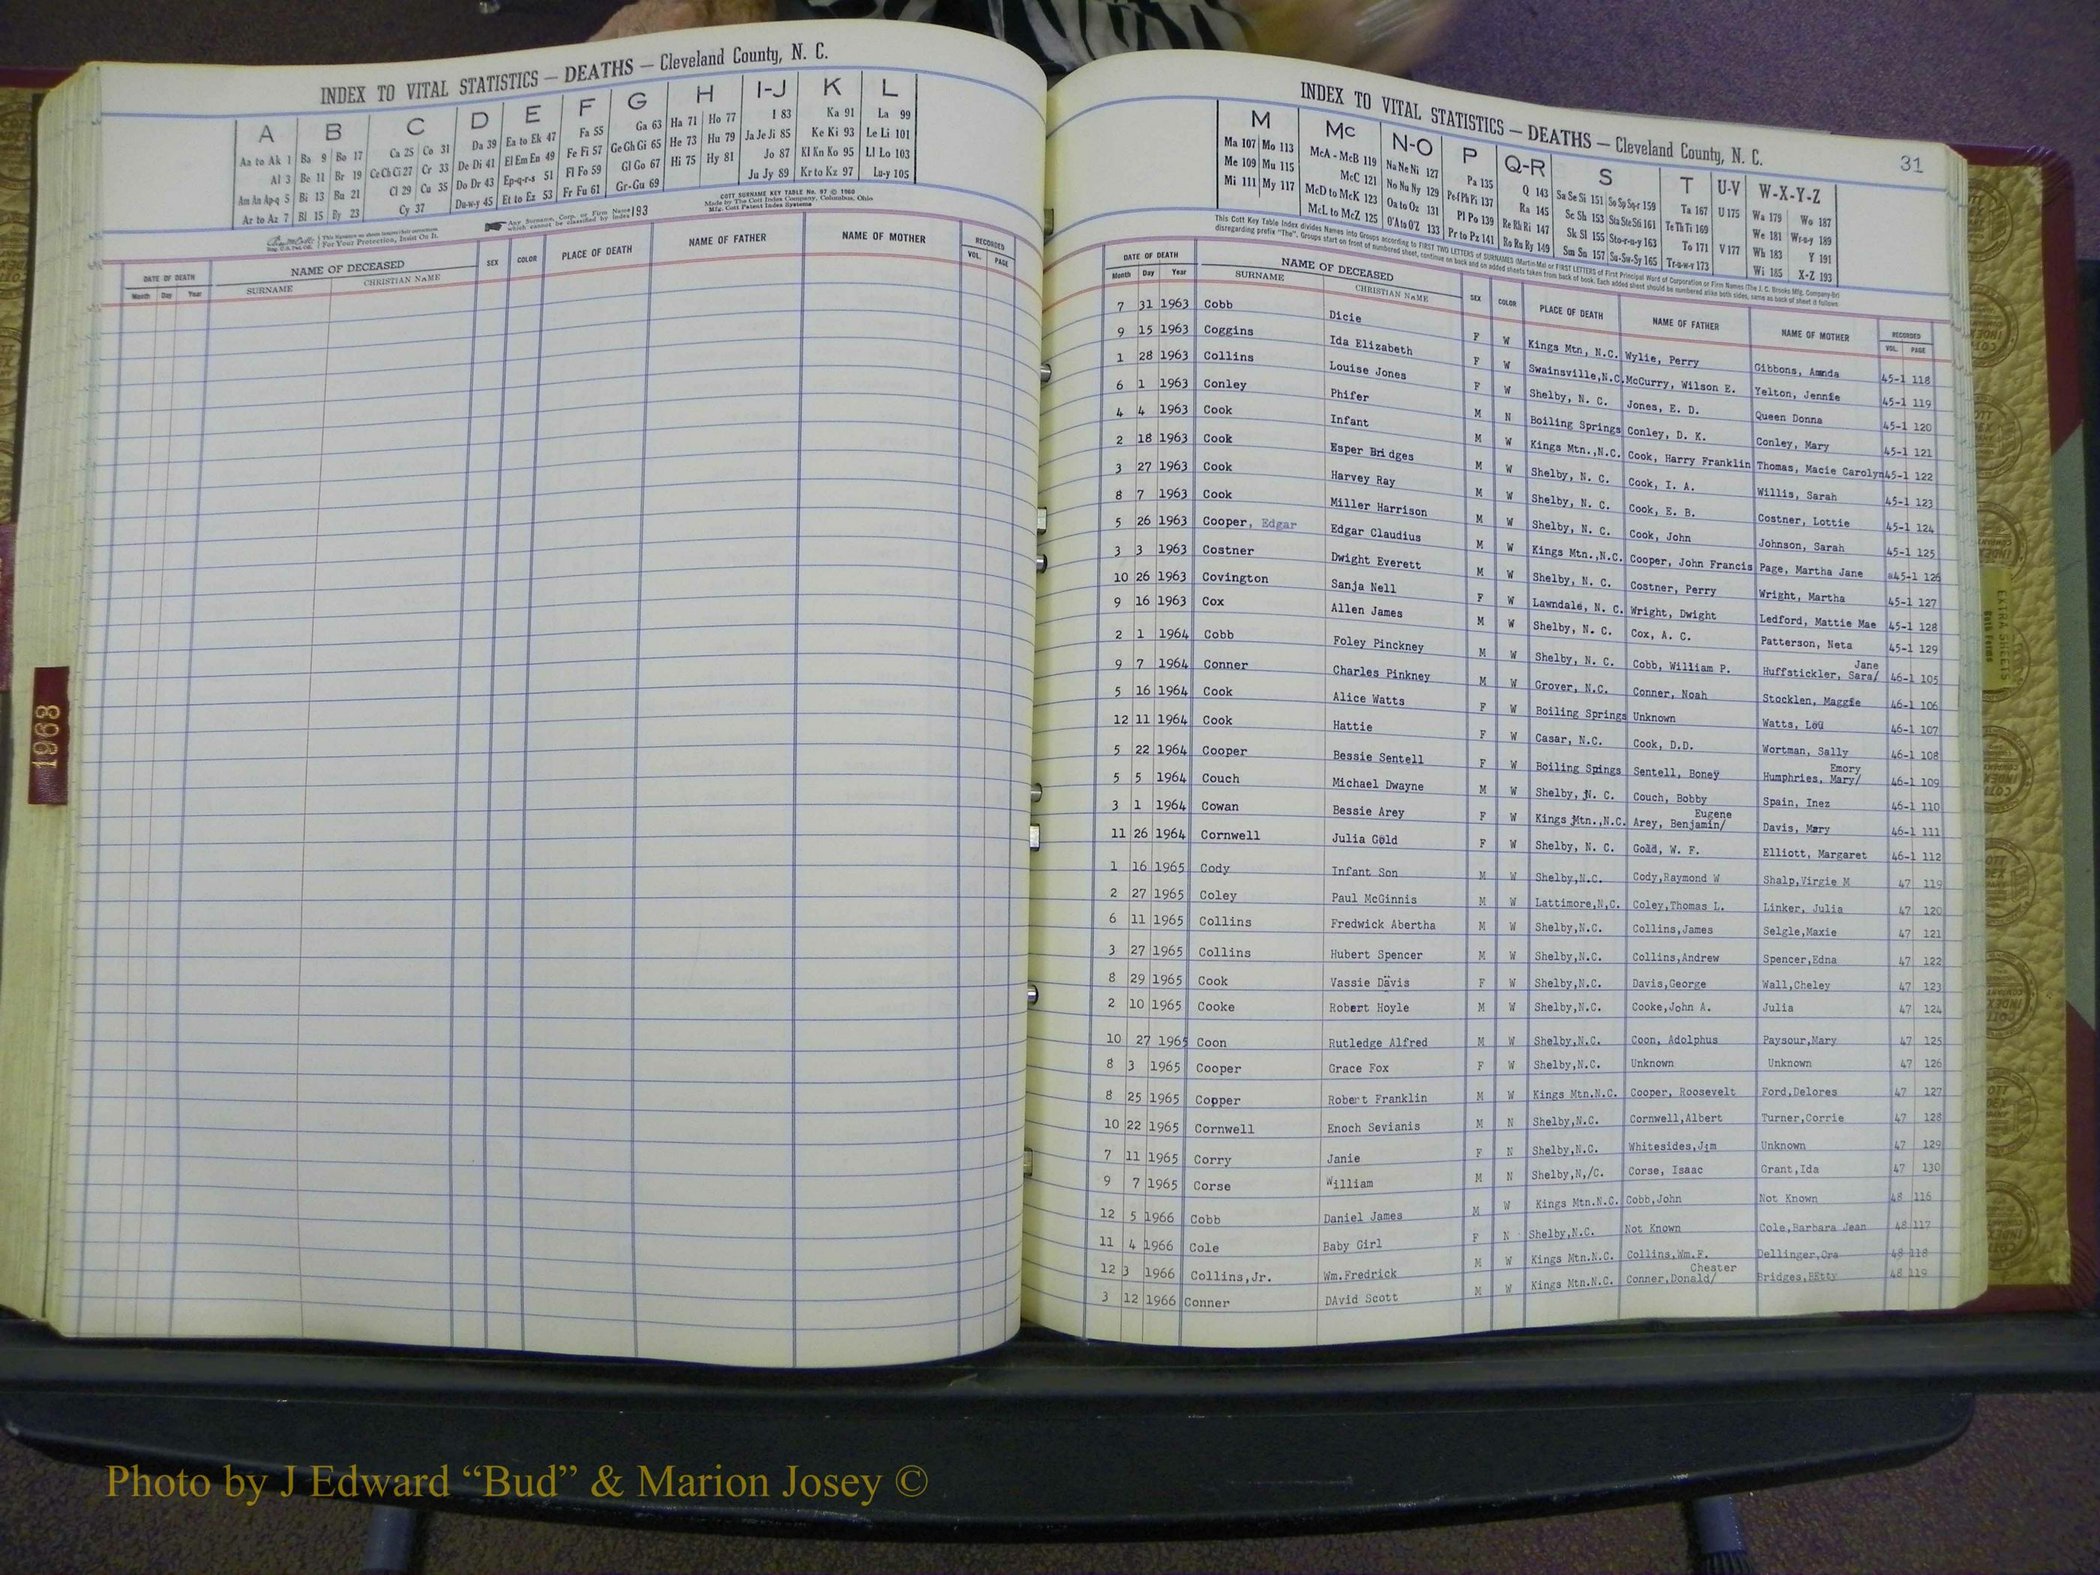 INDEX TO VITAL STATISTICS — DEATHS — Cleveland County, N. C.
A B C D E F G H I-J K L
Aa to Ak 1 Ba 9 Bo 17 Ca 25 Co 31 Da 39 Ea to Ek 47 Fa 55 Ga 63 Ha 71 Ho 77 I 83 Ka 91 La 99
Al 3 Be 11 Br 19 Ce Ch Ci 27 Cr 33 De Di 41 El Em En 49 Fe Fi 57 Ge Gh Gi 65 He 73 Hu 79 Ja Je Ji 85 Ke Ki 93 Le Li 101
Am An Ap-q 5 Bi 13 Bu 21 Cl 29 Cu 35 Do Dr 43 Ep-q-r-s 51 Fl Fo 59 Gl Go 67 Hi 75 Hy 81 Jo 87 Kl Kn Ko 95 Ll Lo 103
Ar to Az 7 Bl 15 By 23 Cy 37 Du-w-y 45 Et to Ez 53 Fr Fu 61 Gr-Gu 69 Ju Jy 89 Kr to Kz 97 Lu-y 105
For Your Protection, Insist On It.
Any Surname, Corp. or Firm Name which cannot be classified by Index 193
COTT SURNAME KEY TABLE No. 97 © 1960
Made by The Cott Index Company, Columbus, Ohio
Mfg. Cott Patent Index Systems
DATE OF DEATH NAME OF DECEASED SEX COLOR PLACE OF DEATH NAME OF FATHER NAME OF MOTHER RECORDED
Month Day Year SURNAME CHRISTIAN NAME VOL. PAGE
1968
INDEX TO VITAL STATISTICS — DEATHS — Cleveland County, N. C.
31
M Mc N-O P Q-R S T U-V W-X-Y-Z
Ma 107 Mo 113 McA - McB 119 Na Ne Ni 127 Pa 135 Q 143 Sa Se Si 151 So Sp Sq-r 159 Ta 167 U 175 Wa 179 Wo 187
Me 109 Mu 115 McC 121 No Nu Ny 129 Pe-f Ph Pi 137 Ra 145 Sc Sh 153 Sta Ste Sti 161 Te Th Ti 169 We 181 Wr-u-y 189
Mi 111 My 117 McD to McK 123 Oa to Oz 131 Pl Po 139 Re Rh Ri 147 Sk Sl 155 Sto-r-u-y 163 To 171 V 177 Wh 183 Y 191
McL to McZ 125 O'A to O'Z 133 Pr to Pz 141 Ro Ru Ry 149 Sm Sn 157 Su-Sw-Sy 165 Tr-u-w-y 173 Wi 185 X-Z 193
This Cott Key Table Index divides Names into Groups according to FIRST TWO LETTERS of SURNAMES (Martin-Ma) or FIRST LETTERS of First Principal Word of Corporation or Firm Names (The J. C. Brooks Mfg. Company-Br)
disregarding prefix "The". Groups start on front of numbered sheet, continue on back and on added sheets taken from back of book. Each added sheet should be numbered alike both sides, same as back of sheet it follows
DATE OF DEATH NAME OF DECEASED SEX COLOR PLACE OF DEATH NAME OF FATHER NAME OF MOTHER RECORDED
Month Day Year SURNAME CHRISTIAN NAME VOL. PAGE
7 31 1963 Cobb Dicie F W Kings Mtn, N.C. Wylie, Perry Gibbons, Amnda 45-1 118
9 15 1963 Coggins Ida Elizabeth F W Swainsville,N.C. McCurry, Wilson E. Yelton, Jennie 45-1 119
1 28 1963 Collins Louise Jones F W Shelby, N. C. Jones, E. D. Queen Donna 45-1 120
6 1 1963 Conley Phifer M N Boiling Springs Conley, D. K. Conley, Mary 45-1 121
4 4 1963 Cook Infant M W Kings Mtn.,N.C. Cook, Harry Franklin Thomas, Macie Carolyn 45-1 122
2 18 1963 Cook Esper Bridges M W Shelby, N. C. Cook, I. A. Willis, Sarah 45-1 123
3 27 1963 Cook Harvey Ray M W Shelby, N. C. Cook, E. B. Costner, Lottie 45-1 124
8 7 1963 Cook Miller Harrison M W Shelby, N. C. Cook, John Johnson, Sarah 45-1 125
5 26 1963 Cooper, Edgar Edgar Claudius M W Kings Mtn.,N.C. Cooper, John Francis Page, Martha Jane 45-1 126
3 3 1963 Costner Dwight Everett M W Shelby, N. C. Costner, Perry Wright, Martha 45-1 127
10 26 1963 Covington Sanja Nell F W Lawndale, N. C. Wright, Dwight Ledford, Mattie Mae 45-1 128
9 16 1963 Cox Allen James M W Shelby, N. C. Cox, A. C. Patterson, Neta 45-1 129
2 1 1964 Cobb Foley Pinckney M W Shelby, N. C. Cobb, William P. Huffstickler, Sara/ Jane 46-1 105
9 7 1964 Conner Charles Pinkney M W Grover, N.C. Conner, Noah Stocklen, Maggie 46-1 106
5 16 1964 Cook Alice Watts F W Boiling Springs Unknown Watts, Lou 46-1 107
12 11 1964 Cook Hattie F W Casar, N.C. Cook, D.D. Wortman, Sally 46-1 108
5 22 1964 Cooper Bessie Sentell F W Boiling Springs Sentell, Boney Humphries, Mary/ Emory 46-1 109
5 5 1964 Couch Michael Dwayne M W Shelby, N. C. Couch, Bobby Spain, Inez 46-1 110
3 1 1964 Cowan Bessie Arey F W Kings Mtn.,N.C. Arey, Benjamin/ Eugene Davis, Mary 46-1 111
11 26 1964 Cornwell Julia Gold F W Shelby, N. C. Gold, W. F. Elliott, Margaret 46-1 112
1 16 1965 Cody Infant Son M W Shelby,N.C. Cody,Raymond W Shalp,Virgie M 47 119
2 27 1965 Coley Paul McGinnis M W Lattimore,N,C. Coley,Thomas L. Linker, Julia 47 120
6 11 1965 Collins Fredwick Abertha M W Shelby,N.C. Collins,James Selgle,Maxie 47 121
3 27 1965 Collins Hubert Spencer M W Shelby,N.C. Collins,Andrew Spencer,Edna 47 122
8 29 1965 Cook Vassie Davis F W Shelby,N.C. Davis,George Wall,Cheley 47 123
2 10 1965 Cooke Robert Hoyle M W Shelby,N.C. Cooke,John A. Julia 47 124
10 27 1965 Coon Rutledge Alfred M W Shelby,N.C. Coon, Adolphus Paysour,Mary 47 125
8 3 1965 Cooper Grace Fox F W Shelby,N.C. Unknown Unknown 47 126
8 25 1965 Copper Robert Franklin M W Kings Mtn.N.C. Cooper, Roosevelt Ford,Delores 47 127
10 22 1965 Cornwell Enoch Sevianis M N Shelby,N.C. Cornwell,Albert Turner,Corrie 47 128
7 11 1965 Corry Janie F N Shelby,N.C. Whitesides,Jim Unknown 47 129
9 7 1965 Corse William M N Shelby,N,/C. Corse, Isaac Grant,Ida 47 130
12 5 1966 Cobb Daniel James M W Kings Mtn.N.C. Cobb,John Not Known 48 116
11 4 1966 Cole Baby Girl F N Shelby,N.C. Not Known Cole,Barbara Jean 48 117
12 3 1966 Collins,Jr. Wm.Fredrick M W Kings Mtn.N.C. Collins,Wm.F. Dellinger,Ora 48 118
3 12 1966 Conner DAvid Scott M W Kings Mtn.N.C. Conner,Donald/ Chester Bridges,Betty 48 119
EXTRA SHEETS
Photo by J Edward “Bud” & Marion Josey ©